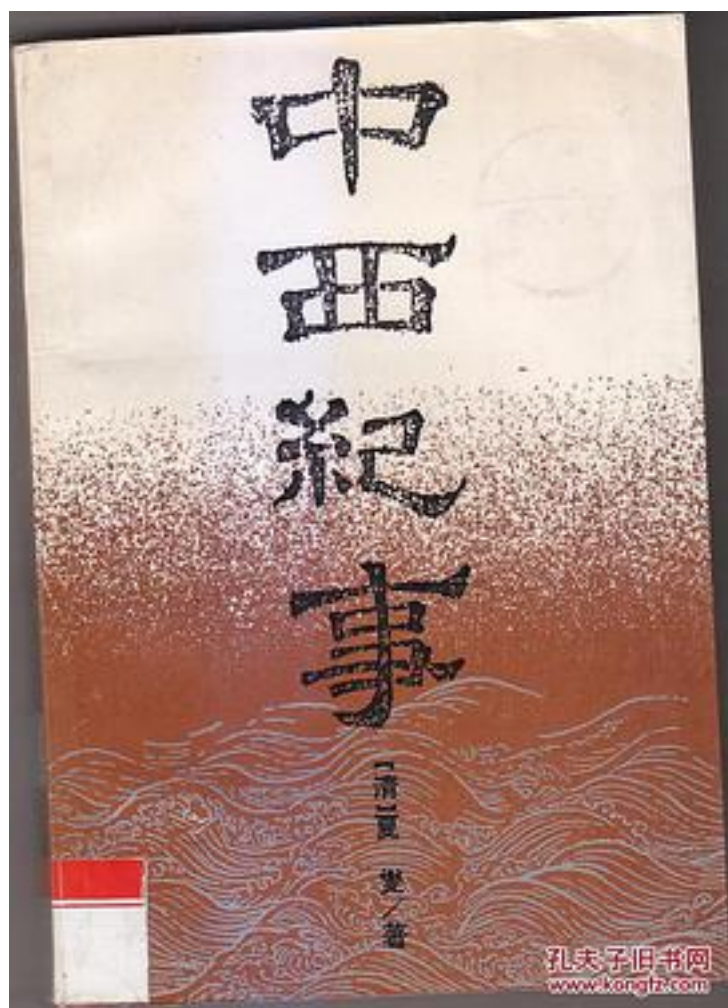 中西紀事
【清】夏燮/著
孔夫子旧书网
www.kongfz.com